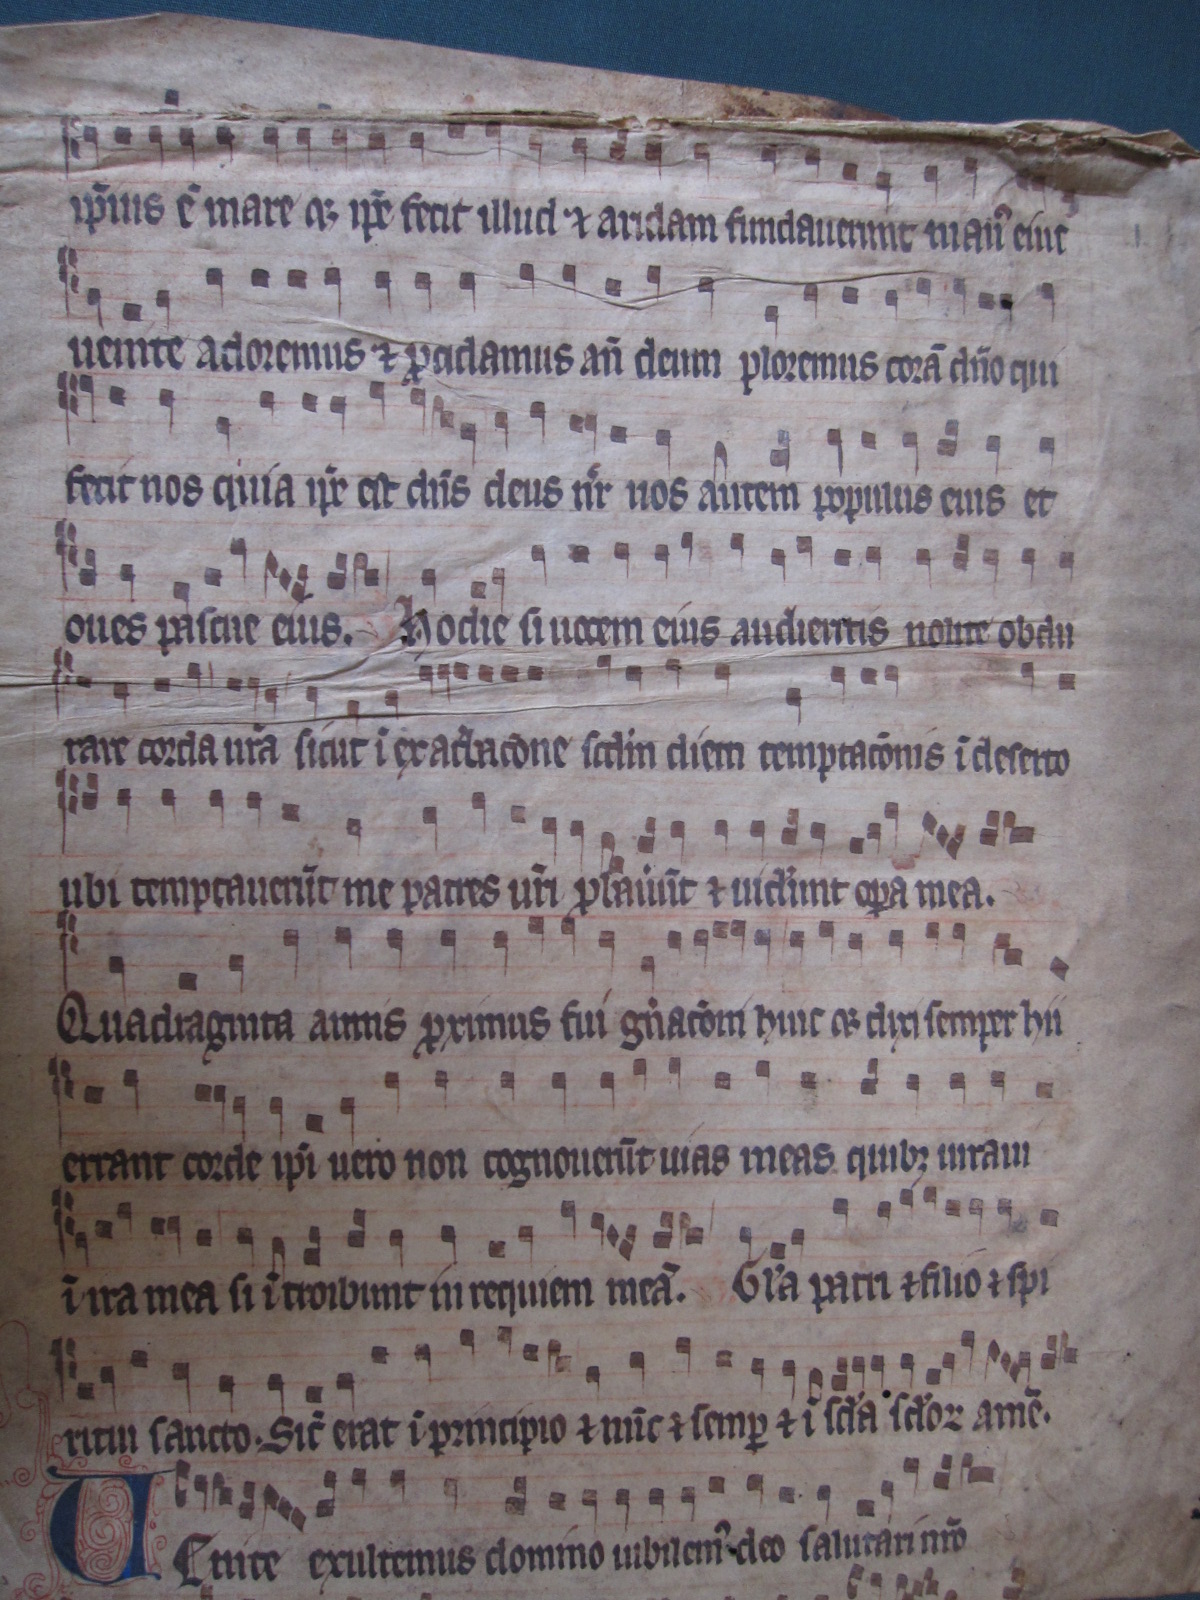 ip̄ius ē mare q̄ ip̄e fecit illud ⁊ aridam fundauerunt man᷒ eius
uenite adoremus ⁊ p̄cidamus an̄ deum ploremus corā dn̄o qui
fecit nos quia ip̄e est dn̄s deus nr̄ nos autem populus eius et
oues pascue eius. Hodie si uocem eius audieritis nolite obdu
rare corda ur̄a sicut ī exacerbacōne scd̄m diem temptacōnis ī deserto
ubi temptauerūt me patres ur̄i ꝓbauer̄ūt ⁊ uider̄unt opa mea.
Quadraginta annis proximus fui gn̄acōni huic ⁊ dixi semper hii
errant corde ip̄i uero non cognouerūt uias meas quibꝫ iuraui
ī ira mea si ītroibunt in requiem meā. Gl̄a patri ⁊ filio ⁊ spi
ritui sancto. Sic̄ erat ī principio ⁊ nūc ⁊ semꝑ ⁊ ī scl̄a scl̄oꝝ amē.
Uenite exultemus domino iubilem᷒ deo salutari nr̄o